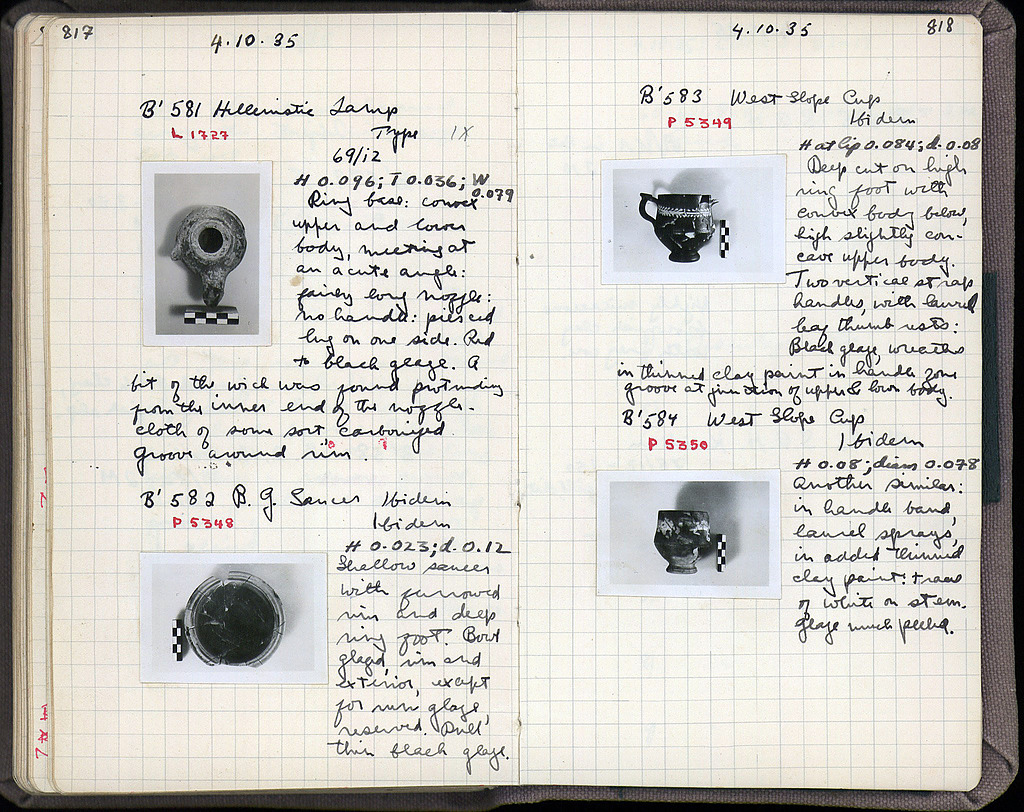 817
4.10.35
B' 581 Hellenistic Lamp
L 1727
Type IX
69/ΙΖ
H 0.096; T 0.036; W 0.079
Ring base: convex
upper and lower
body, meeting at
an acute angle:
fairly long nozzle:
no handle: pierced
lug on one side. Red
to black glaze. A
bit of the wick was found protruding
from the inner end of the nozzle.
cloth of some sort, carbonized.
Groove around rim.
B' 582 B. G. Saucer Ibidem
P 5348
Ibidem
H 0.023; d. 0.12
Shallow saucer
with furrowed
rim and deep
ring foot. Bowl
glazed, rim and
exterior, except
for rim glaze,
reserved. Dull
thin black glaze.
4.10.35
818
B' 583 West Slope Cup
Ibidem
P 5349
H at lip 0.084; d. 0.08
Deep cut on high
ring foot with
convex body below,
high slightly con-
cave upper body.
Two vertical strap
handles, with laurel
leaf thumb rests:
Black glaze, wreaths
in thinned clay paint in handle zone
groove at junction of upper & lower body.
B' 584 West Slope Cup
Ibidem
P 5350
H 0.08; diam 0.078
Another similar:
in handle band,
laurel sprays,
in added thinned
clay paint: trace
of white on stem.
Glaze much peeled.